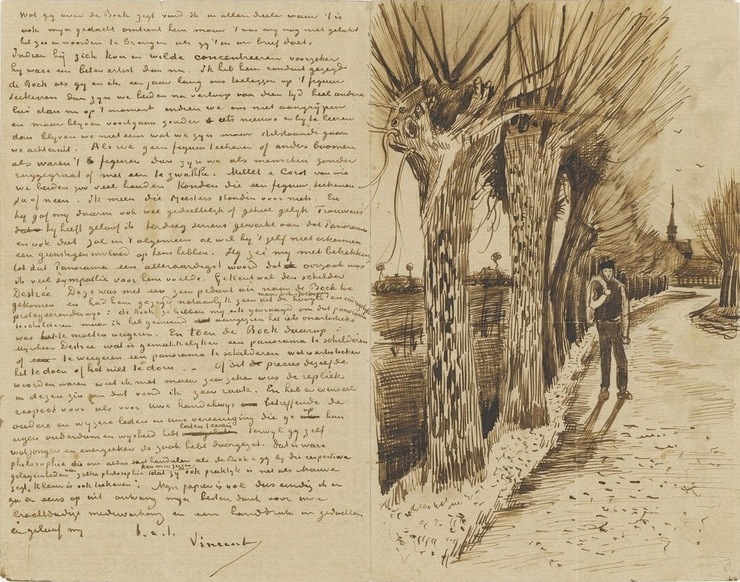 Wat gy over de Bock zegt vind ik in allen deele waar 't is
ook myn gedacht omtrent hem maar 't was my nog niet gelukt
het zoo in woorden te brengen als gy 't in uw brief doet.
Indien hij zich kon en wilde concentreeren voorzeker
hy ware een beter artist dan nu. Ik heb hem ronduit gezegd
de Bock als gy en ik een jaar lang ons toeleggen op 't figuur
teekenen dan zyn we beiden na verloop van dien tyd heel andere
lui dan nu op 't moment indien we ons niet aangrijpen
en maar blyven voortgaan zonder iets nieuws er by te leeren
dan blyven we niet eens wat we zyn maar stilstaande gaan
we achteruit. Als we geen figuur teekenen of anders boomen
als waren 't figuren dan zyn we als menschen zonder
ruggegraat of met een te zwakke. Millet & Corot van wie
we beiden zoo veel houden konden die een figuur teekenen
ja of neen. Ik meen die Meesters stonden voor niets. En
hy gaf my daarin ook wel gedeeltelijk of geheel gelyk Trouwens
hy heeft geloof ik herdeeg serieus gewerkt aan dat Panorama
en ook dat zal in 't algemeen al wil hy 't zelf niet erkennen
een gunstigen invloed op hem hebben. Hy zei my met betrekking
tot dat Panorama een alleraardigst woord dat oorzaak was
ik veel sympathie voor hem voelde. Gy kent wel den schilder
Destrée Deze was met een zeer pedant air naar de Bock toe
gekomen en had hem gezegd natuurlyk zeer uit de hoogte en
de Bock ze hebben my ook gevraagd om dat panorama
te schilderen maar ik het gemeend iets onartistieks
was het te moeten weigeren. En toen de Bock daarop
mynheer Destrée wat is gemakkelyker een panorama te schilderen
of te weigeren een panorama te schilderen wat is artistieker
het te doen of het niet te doen... Of dit precies dezelfde
woorden waren weet ik niet meer zeer zeker was de repliek
in dezen zin en dat vind ik zeer raak. En heb er evenveel
respect voor als voor Uwe handelwys betreffende de
oudere en wyzere leden in uw vereeniging die ge hun
eigen ouderdom en wysheid hebt terwyl gy zelf
wat jonger en energieker de zaak hebt doorgezet. Dat is ware
philosophie die ons doen handelen als de Bock & gy by die respectieve
gelegenheden
zegt, kleuren is ook teekenen. Myn papier is vol dus eindig ik en
ga er eens op uit ontvang myn besten dank voor uwe
krachtdadige medewerking en een handdruk in gedachten
en geloof my t. à t.
Vincent